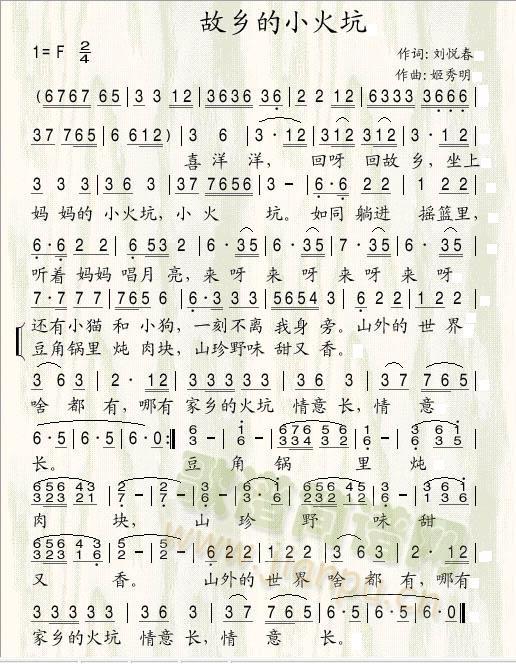 故乡的小火坑
1= F 2/4
作词: 刘悦春
作曲: 姬秀明
(6767 65 | 3 3 12 | 3636 36 | 2 2 12 | 6333 3666 |
37 765 | 6 612) | 3 6 | 3 · 12 | 312 312 | 3 · 12 |
喜 洋 洋, 回呀 回故 乡, 坐上
3 3 3 | 3 6 3 | 37 7656 | 3 - | 6·6 2 2 | 1 2 2 |
妈 妈的 小火坑, 小 火 坑。 如同 躺进 摇篮里,
6·6 2 2 | 6 53 2 | 6 · 35 | 6 · 35 | 7 · 35 | 6 · 35 |
听着 妈妈 唱月 亮, 来 呀 来 呀 来 呀 来 呀
7·7 7 7 | 765 6 | 6·3 3 3 | 5654 3 | 6 2 2 | 1 2 2 |
还有小猫 和 小狗, 一刻不离 我身 旁。山外的 世 界
豆角锅里 炖 肉块, 山珍野味 甜又 香。
3 6 3 | 2 · 12 | 3 3 3 3 3 | 3 6 3 | 3 7 7 6 5 |
啥 都 有, 哪有 家乡的火坑 情意 长, 情 意
6·5 | 6·5 | 6·0 :|
长。 豆 角 锅 里 炖
肉 块, 山 珍 野 味 甜
又 香。 山外的 世 界 啥 都 有, 哪有
3 3 3 3 3 | 3 6 3 | 3 7 7 6 5 | 6·5 | 6·5 | 6·0 ‖
家乡的火坑 情意 长, 情 意 长。